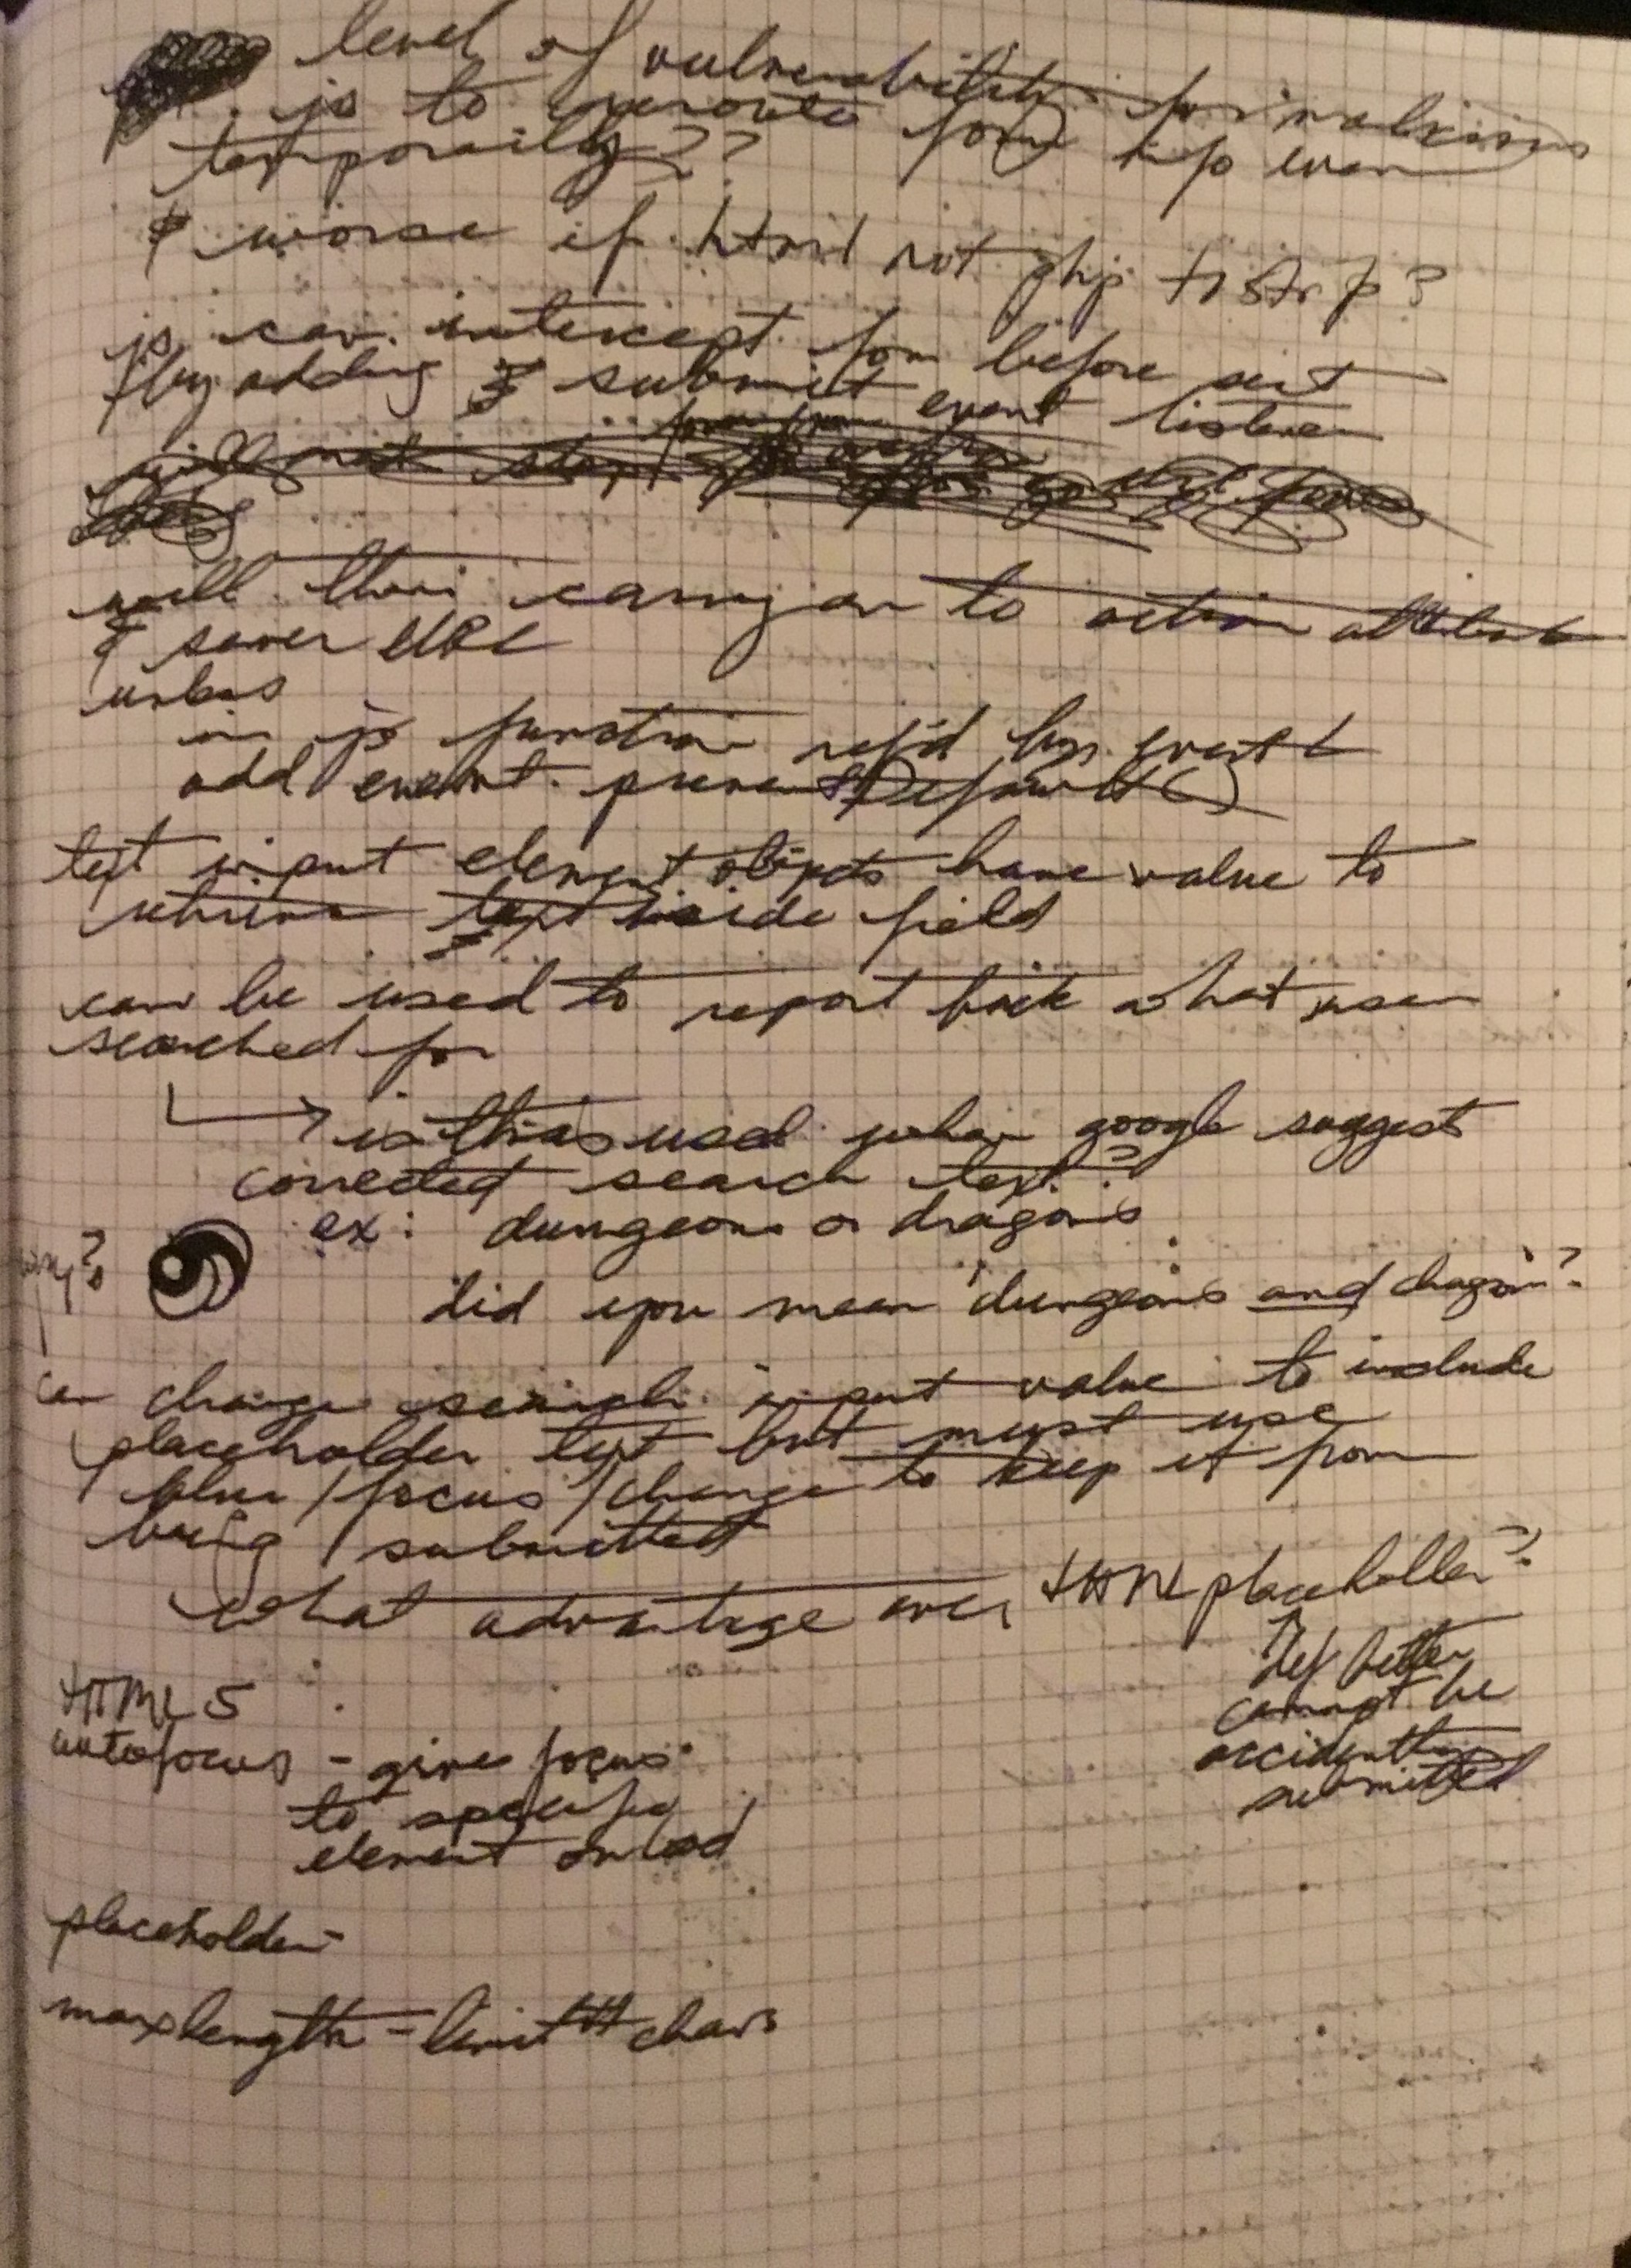 level of vulnerability for malicious
js to form info even
temporarily??
& worse if html not php to strip?
js can intercept form before sent
by adding submit event listener
will then carry on to action attribute
& server URL
unless
in js function ref'd by event
add event.preventDefault()
text input element objects have value to
retrieve text inside field
can be used to report back what user
searched for
→ is this used when google suggest
corrected search text?
ex: dungeons or dragons
did you mean "dungeons and dragons"?
can change search input value to include
placeholder text but must use
blur/focus/change to keep it from
being submitted
what advantage over HTML placeholder?
def better
cannot be
accidentally
submitted
HTML5
autofocus - give focus
to specific
element onload
placeholder -
maxlength - limit # chars